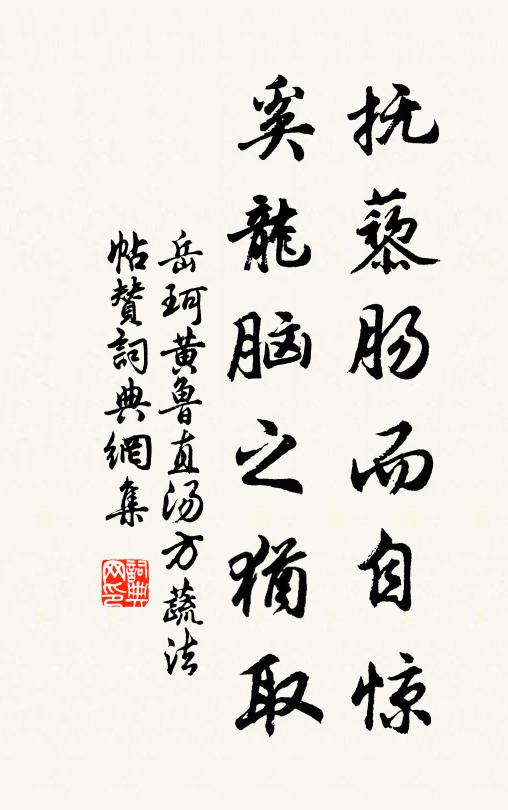 抚藜肠而自惊
奚龍脑之犹取
岳珂黄魯直汤方蔬法
帖贊詞典網集
詞典网印